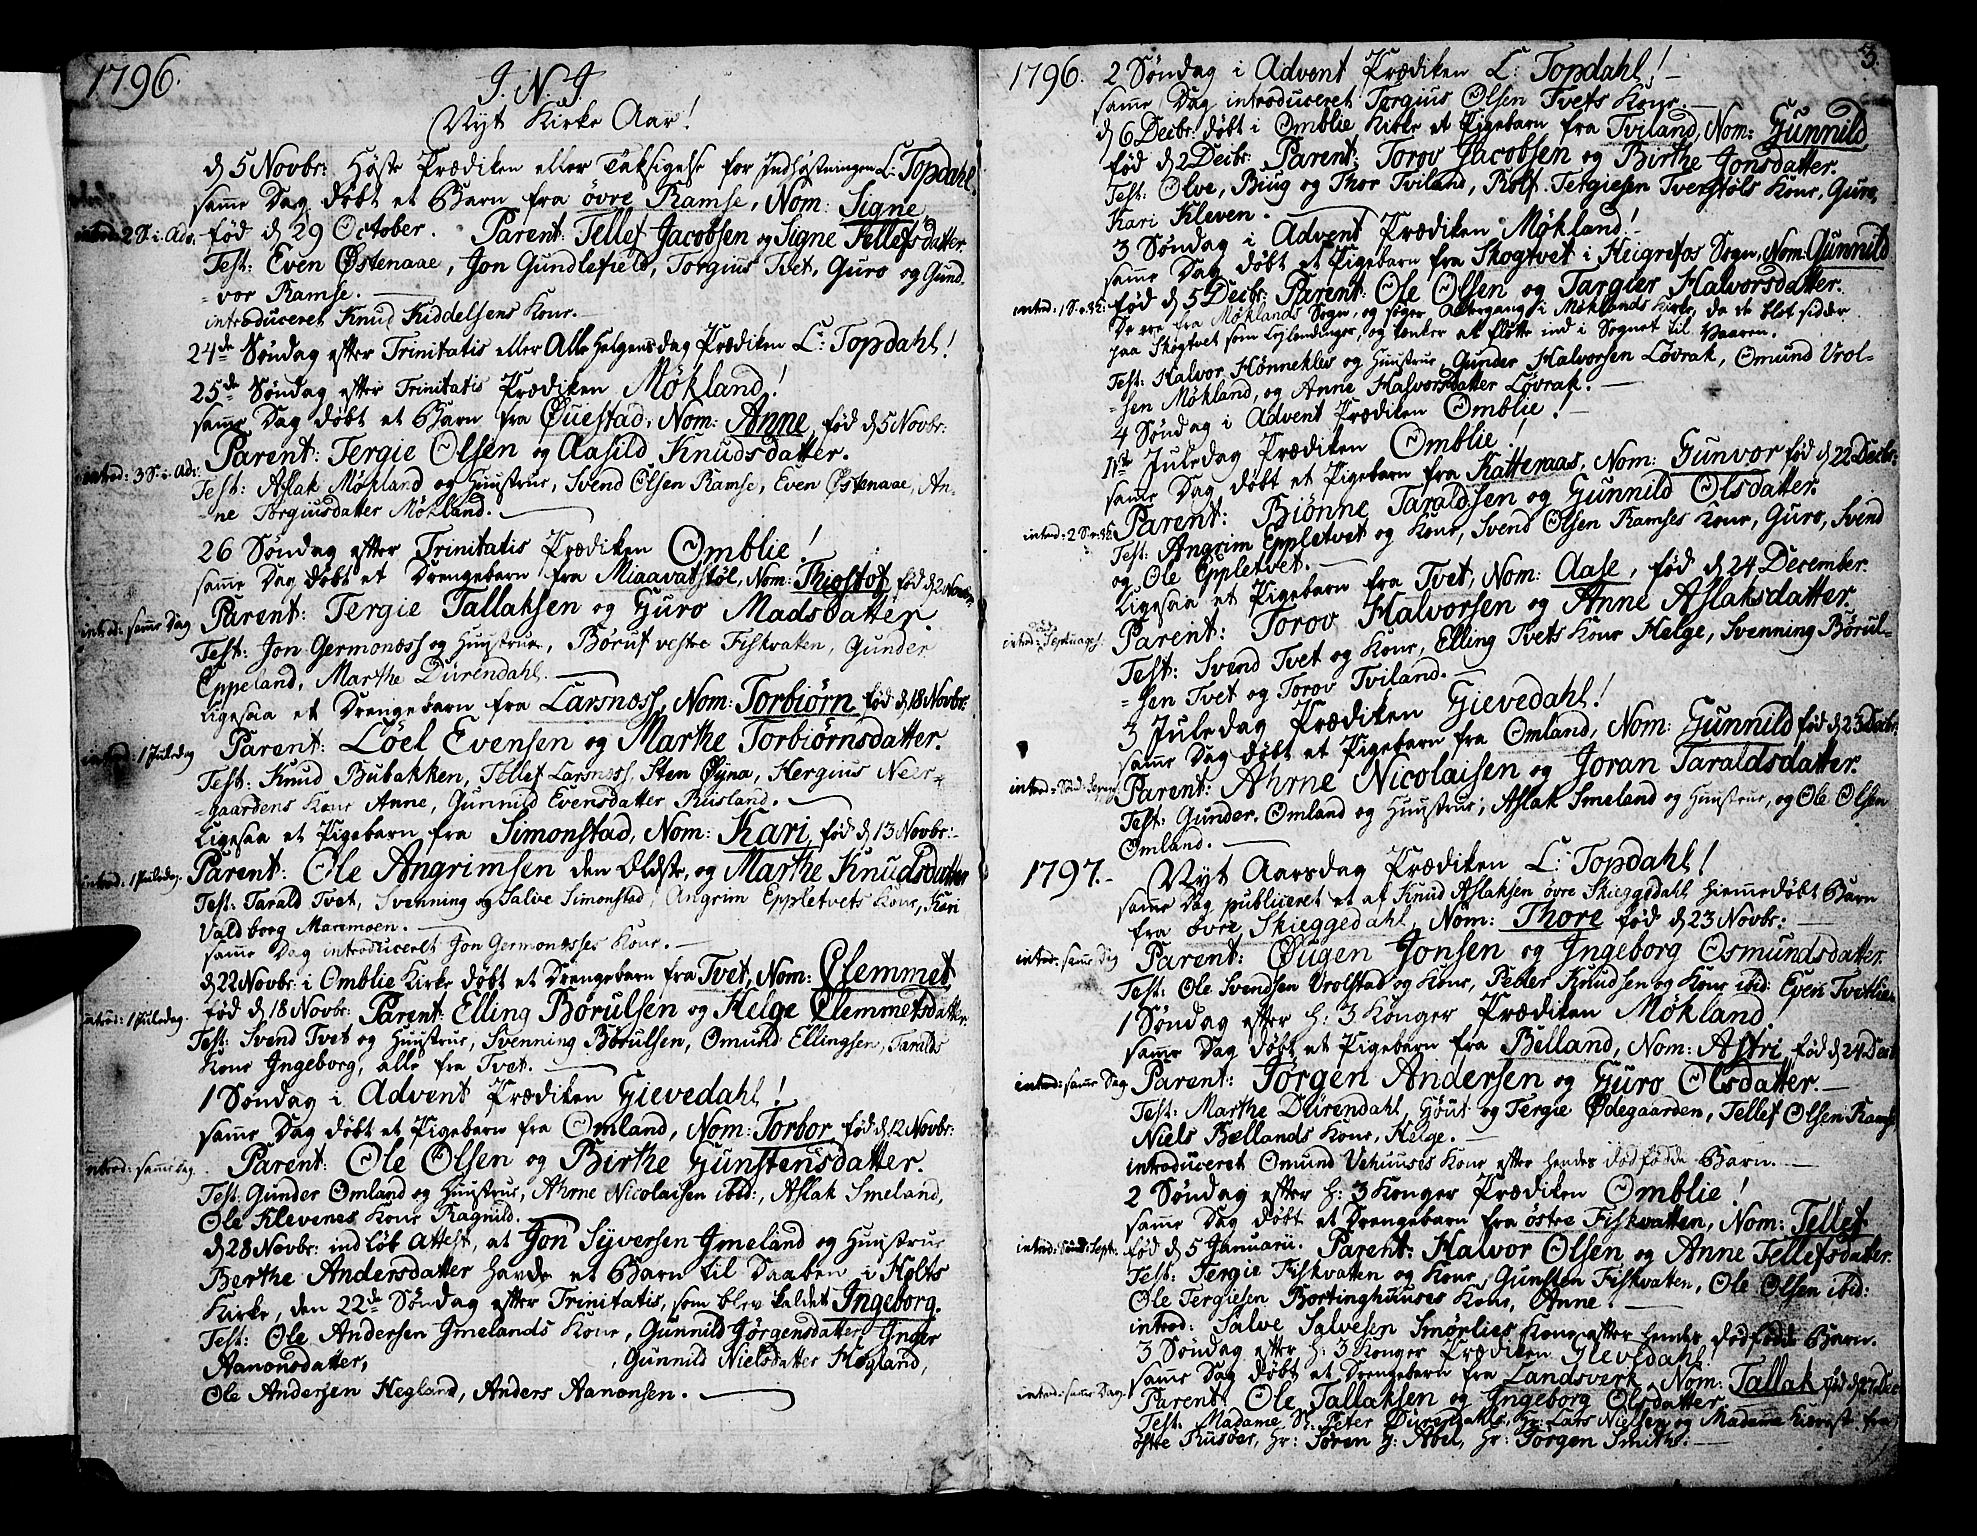 1796.
J. N. J.
Nyt Kirke Aar!
d 5 Novbr: Høste Prædiken eller Taksigelse for Indhøstningen L: Topdahl.
samme Dag døbt et Barn fra øvre Ramse, Nom: Signe
introd: 2 S: i Adv: fød d 29 October. Parent: Tellef Jacobsen og Signe Tellefsdatter
Test: Even Østenaae, Jon Gundlefield, Torgius Tvet, Guro og Gund-
-vor Ramse.
introduceret Knud Kiddelsens Kone.
24de Søndag efter Trinitatis eller Alle Helgensdag Prædiken L: Topdahl!
25de Søndag efter Trinitatis Prædiken Møkland!
samme Dag døbt et Barn fra Øuestad, Nom: Anne, fød d 5 Novbr:
Parent: Tergie Olsen og Aasild Knudsdatter.
introd: 3 S: i Ad: Test: Aslak Møkland og Huustrue, Svend Olsen Ramse, Even Østenaae, An-
-ne Torgiusdatter Møkland.
26 Søndag efter Trinitatis Prædiken Omblie!
samme Dag døbt et Drengebarn fra Miaavatstøl, Nom: Thiostof, fød d 2 Novembr:
introd: samme Dag Parent: Tergie Tallaksen og Guro Madsdatter.
Test: Jon Germonæss og Huustrue, Børuf vestre Fiskvatten, Gunder
Eppeland, Marthe Durendahl.
Ligesaa et Drengebarn fra Larsnæss, Nom: Torbiørn fød d 18 Novbr:
introd: 1 Juledag Parent: Løel Evensen og Marthe Torbiørnsdatter.
Test: Knud Bubakken, Tellef Larsnæss, Sten Øyna, Hergius Neer-
-gaardens Kone Anne, Gunnild Evensdatter Risland.
Ligesaa et Pigebarn fra Simonstad, Nom: Kari, fød d 13 Novbr:
introd: 1 Juledag. Parent: Ole Angrimsen den Eldste, og Marthe Knudsdatter
Test: Tarald Tvet, Svenning og Salve Simonstad, Angrim Eppletvets Kone, Kari
Valdborg Maremoen.
samme Dag introduceret Jon Germonæsses Kone.
d 22 Novbr: i Omblie Kirke døbt et Drengebarn fra Tvet, Nom: Clemmet
introd: 1 Juledag. fød d 18 Novbr: Parent: Elling Børulsen og Helge Clemmetsdatter
Test: Svend Tvet og Huustrue, Svenning Børulsen, Omund Ellingsen, Taralds
Kone Ingeborg, alle fra Tvet.
1 Søndag i Advent Prædiken Gievedahl!
samme Dag døbt et Pigebarn fra Omland, Nom: Torbor fød d 12 Novbr:
introd: samme Dag. Parent: Ole Olsen og Birthe Gunstensdatter.
Test: Gunder Omland og Huustrue, Ahrne Nicolaisen ibid:, Aslak Smeland,
Ole Klevenes Kone Ragnild.
d 28 Novbr: indløb Attest, at Jon Syversen Jmeland og Huustrue
Berthe Andersdatter havde et Barn til Daaben i Holts
Kirke, den 22de Søndag efter Trinitatis, som blev kaldet Ingeborg.
Test: Ole Andersen Jmelands Kone, Gunnild Jørgensdatter, Inger
Aanonsdatter, , Gunnild Nielsdatter Hegland,
Ole Andersen Hegland, Anders Aanonsen.
3.
1796. 2 Søndag i Advent Prædiken L: Topdahl!
samme Dag introduceret Torgius Olsen Tvets Kone.
d 6 Decbr: døbt i Omblie Kirke et Pigebarn fra Tviland, Nom: Gunnild
fød d 2 Decbr: Parent: Torov Jacobsen og Birthe Jonsdatter.
Test: Olve, Biug og Thor Tviland, Rolf Tergiesen Tverstøls Kone, Guro,
Kari Kleven.
3 Søndag i Advent Prædiken Møkland!
samme Dag døbt et Pigebarn fra Skogtvet i Heigrefos Sogn, Nom: Gunnild
introd: 1 S: e: 3K: fød d 5 Decbr: Parent: Ole Olsen og Targier Halvorsdatter.
De ere fra Møklands Sogn, og søger Altergang i Møklands Kirke, da de blot sidder
paa Skogtvet som Lejlendinger, og tenker at flötte ind i Sognet til Vaaren.
Test: Halvor Hønnekles og Huustrue, Gunder Halvorsen Løvrak, Omund Vrol-
-sen Møkland, og Anne Halvorsdatter Løvrak.
4 Søndag i Advent Prædiken Omblie!
1ste Juledag Prædiken Omblie!
samme Dag døbt et Pigebarn fra Katteraas, Nom: Gunvor fød d 22 Decbr:
introd: 2 S: e: 3K: Parent: Biønne Taraldsen og Gunnild Olsdatter.
Test: Angrim Eppletvet og Kone, Svend Olsen Ramses Kone, Guro, Svend
og Ole Eppletvet.
Ligesaa et Pigebarn fra Tvet, Nom: Aase, fød d 24 December.
introd: Septuages: Parent: Torov Halvorsen og Anne Aslaksdatter.
Test: Svend Tvet og Kone, Elling Tvets Kone Helge, Svenning Børul-
-sen Tvet og Torov Tviland.
3 Juledag Prædiken Gievedahl!
samme Dag døbt et Pigebarn fra Omland, Nom: Gunnild fød d 23 Decbr:
Parent: Ahrne Nicolaisen og Joran Taraldsdatter.
Test: Gunder Omland og Huustrue, Aslak Smeland og Huustrue, og Ole Olsen
Omland.
1797. Nyt Aarsdag Prædiken L: Topdahl!
samme Dag publiceret et af Knud Aslaksen øvre Skieggedahl hiemmedøbt Barn
fra øvre Skieggedahl, Nom: Thore fød d 23 Novbr:
introd: samme Dag Parent: Øugen Jonsen og Ingeborg Osmundsdatter.
Test: Ole Svendsen Vrolstad og Kone, Peder Knudsen og Kone ibid: Even Tvetlien
1 Søndag efter H: 3 Konger Prædiken Møkland!
samme Dag døbt et Pigebarn fra Belland, Nom: Astri, fød d 24 Decb
introd: samme Dag Parent: Jørgen Andersen og Guro Olsdatter.
Test: Marthe Durendahl, Høut og Tergie Ødegaarden, Tellef Olsen Ramse
Niels Bællands Kone, Helge.
introduceret Omund Uehuuses Kone efter hendes dødfødde Barn.
2 Søndag efter H: 3 Konger Prædiken Omblie!
samme Dag døbt et Drengebarn fra østre Fiskvatten, Nom: Tellef
introd: Sønd: Sept: fød d 5 Januarii. Parent: Halvor Olsen og Anne Tellefsdatter.
Test: Tergie Fiskvatten og Kone, Gunsten Fiskvatten, Ole Olsen ibid:
Ole Tergiesen Bortinghuuses Kone, Anne.
introd: Salve Salvesen Smørlies Kone efter hendes dødfødde Barn.
3 Søndag efter H: 3 Konger Prædiken Gievedahl!
samme Dag døbt et Drengebarn fra Landsverk, Nom: Tallak fød d 27 Dec
introd: samme Dag Parent: Ole Tallaksen og Ingeborg Olsdatter.
Test: Madame Sr: Peter Durendahls, Hr: Lars Nielsen og Madame fra
østre Riisøer, Hr: Søren H: Abel, Hr: Jørgen Smiths.